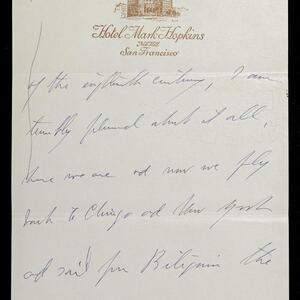 Hotel Mark Hopkins
Nob Hill
San Francisco
of the eighteenth century, I am
terribly pleased about it all,
here we are and now we fly
back to Chicago and New York
and sail for the